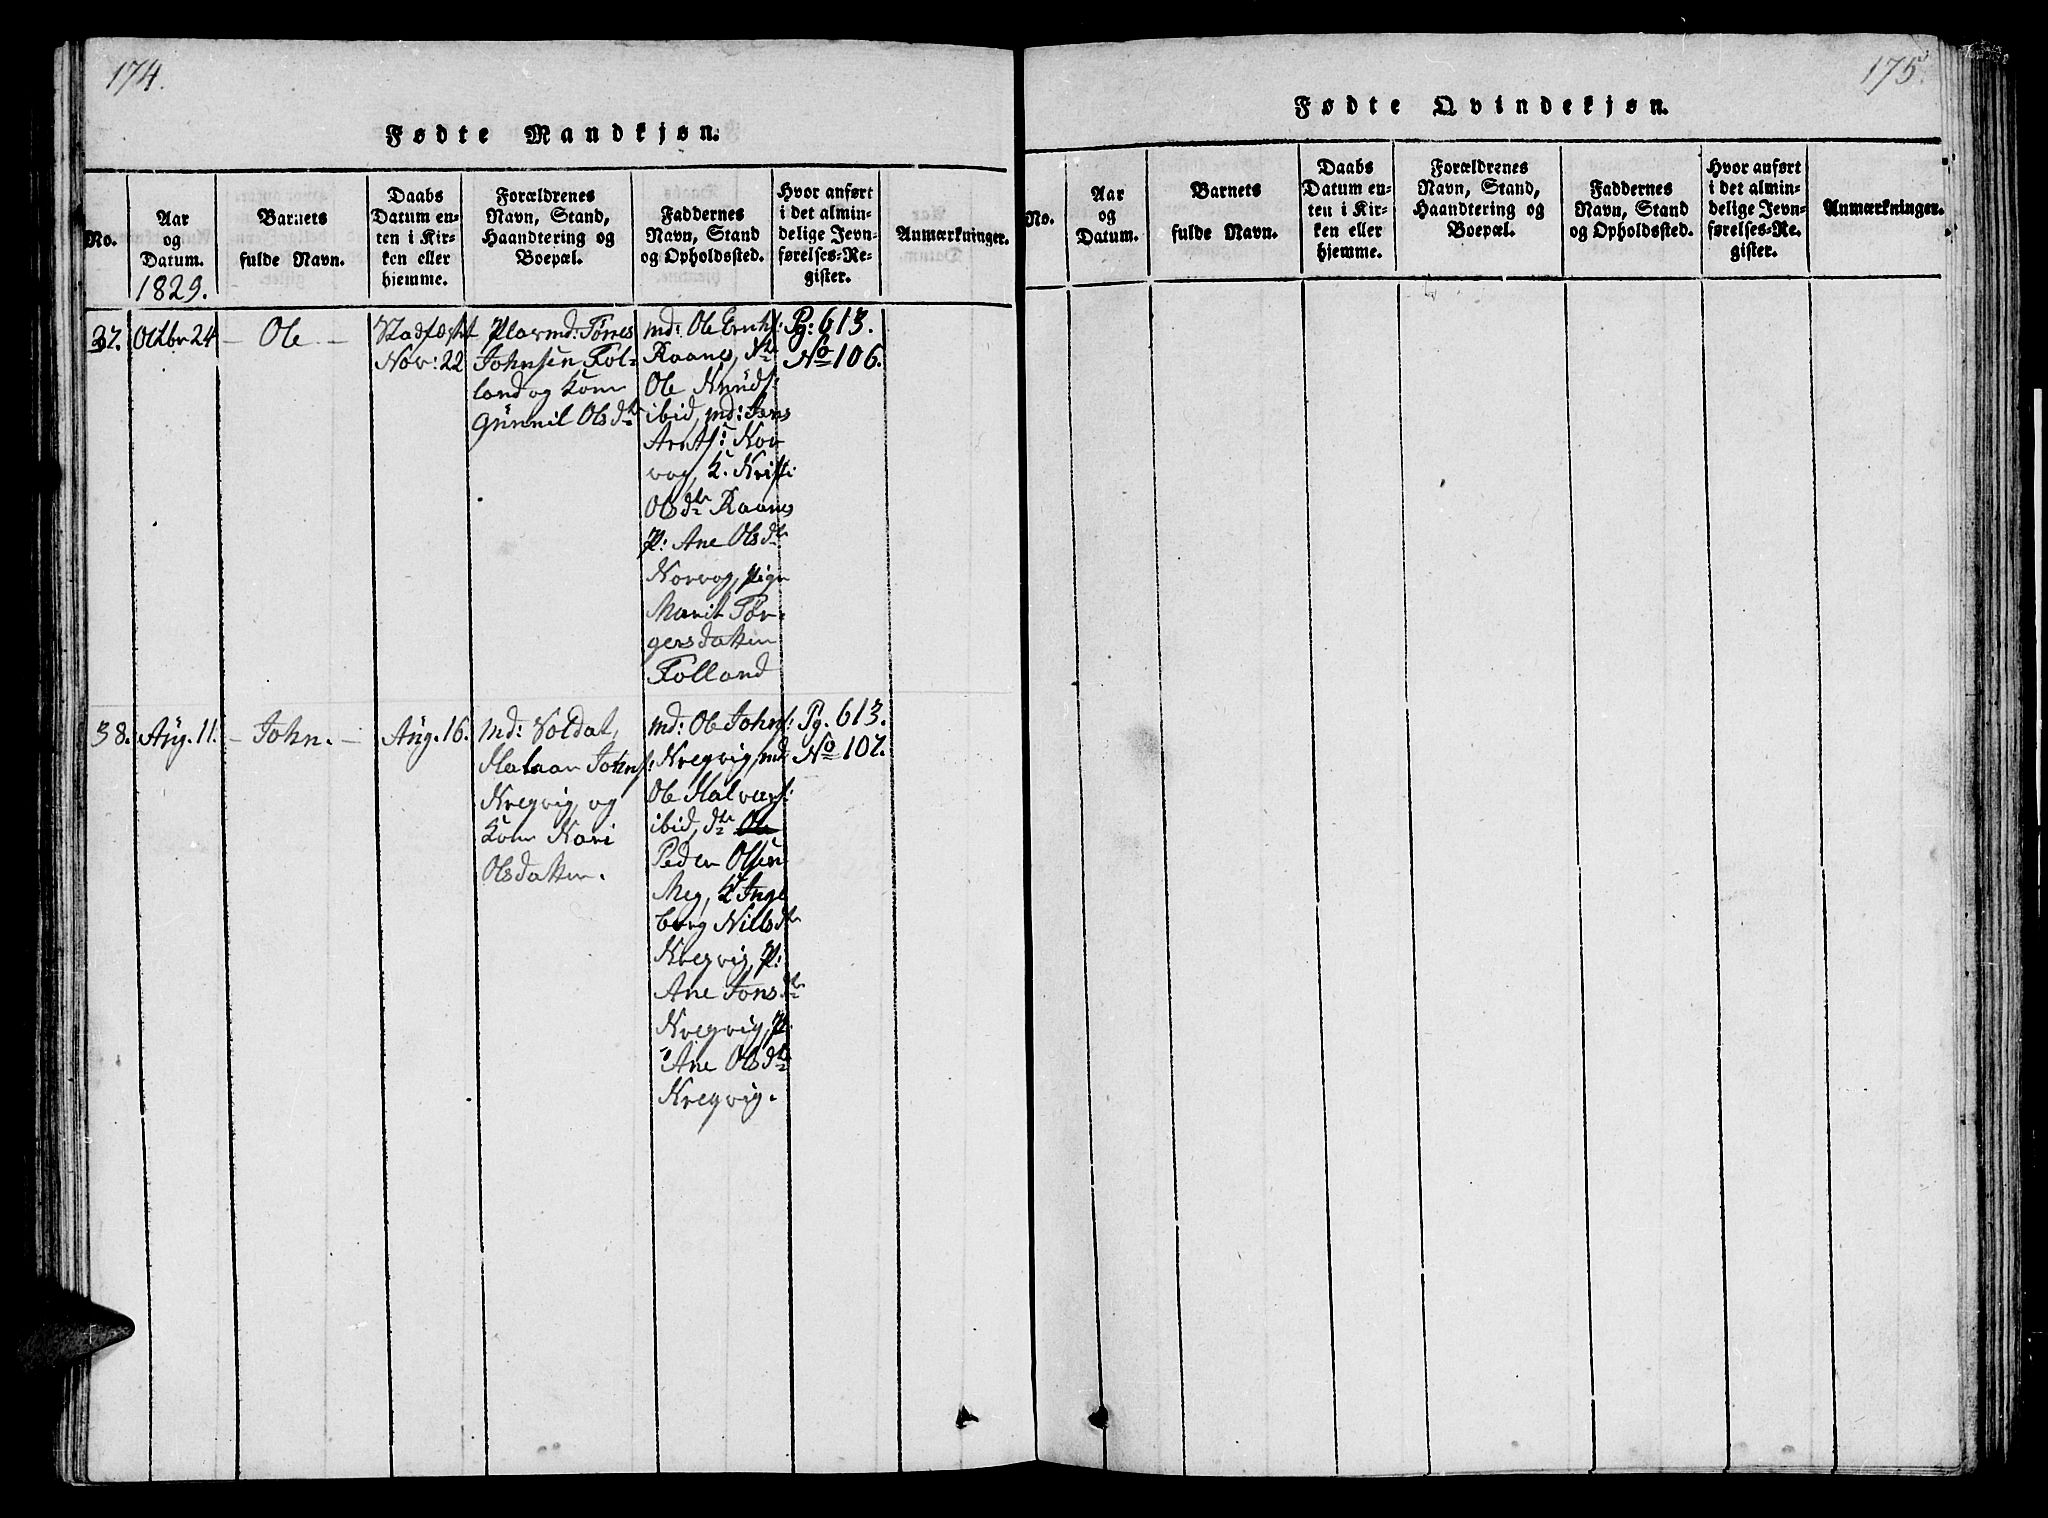 174.
Fødte Mandkjøn.
No.
Aar
og
Datum.
1829.
Barnets
fulde Navn.
Daabs
Datum en-
ten i Kir-
ken eller
hjemme.
Forældrenes
Navn, Stand,
Haandtering og
Boepæl.
Faddernes
Navn, Stand
og Opholdssted.
Hvor anført
i det almin-
delige Jevn-
førelses-Re-
gister.
Anmærkninger.
37.
Octbr 24
- Ole -
Stadfæstet
Nov: 22
Plasmd: Tørres
Johnsen Fol-
land og Kone
Gunnil Olsdtr
md: Ole
Raanes, dto
Ole Knuds:
ibid, md: Jens
Arnts: Kor
vog, K. Kristi
Olsdtr Raanes
P: Ane Olsdtr
Korvog, pige
Marit Tør-
gersdatter
Folland
Pg: 613.
No 106.
38.
Aug. 11.
- John. -
Aug. 16.
md: Soldat,
Johns:
Kregvig, og
Kone Kari
Olsdatter.
md: Ole Johns:
Kregvig, md
Ole Halvors:
ibid, dto Ole
Peder Olsen
Meg, K Inge
borg Nielsdtr
Kregvig, P:
Ane Jonsdtr
Kregvig, P.
Ane Olsdtr
Kregvig.
Pg. 613.
No 107.
175.
Fødte Qvindekjøn.
No.
Aar
og
Datum.
Barnets
fulde Navn.
Daabs
Datum en-
ten i Kir-
ken eller
hjemme.
Forældrenes
Navn, Stand,
Haandtering og
Boepæl.
Faddernes
Navn, Stand
og Opholdssted.
Hvor anført
i det almin-
delige Jevn-
førelses-Re-
gister.
Anmærkninger.